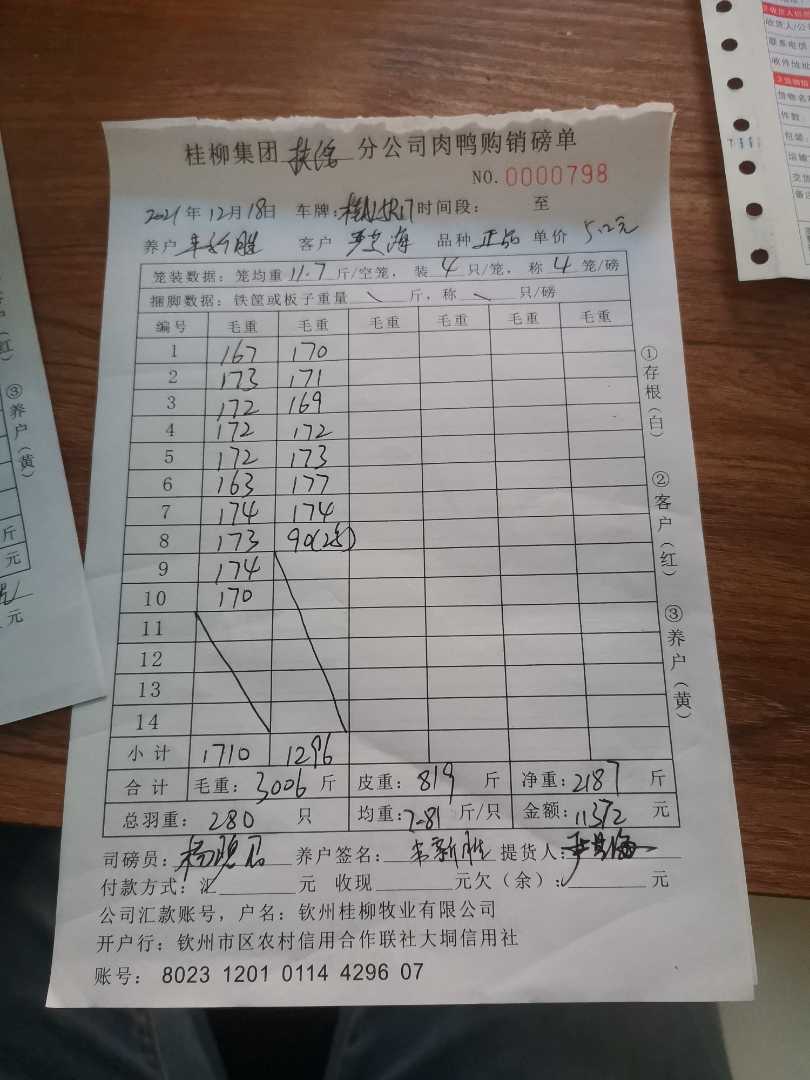 桂柳集团扶绥分公司肉鸭购销磅单
NO.0000798
2021年12月18日 车牌: 时间段: 至
养户 韦新胜 客户 海 品种 正品 单价 5.2元
笼装数据: 笼均重 11.7 斤/空笼, 装 4 只/笼, 称 4 笼/磅
捆脚数据: 铁筐或板子重量 \ 斤, 称 \ 只/磅
编号 毛重 毛重 毛重 毛重 毛重 毛重
1 167 170
2 173 171
3 172 169
4 172 172
5 172 173
6 163 177
7 174 174
8 173 90(2各)
9 174
10 170
11
12
13
14
小计 1710 1296
合计 毛重: 3006 斤 皮重: 819 斤 净重: 2187 斤
总羽重: 280 只 均重: 7-81 斤/只 金额: 11372 元
司磅员: 杨 养户签名: 韦新胜 提货人: 海
付款方式: 汇 元 收现 元欠(余): 元
公司汇款账号, 户名: 钦州桂柳牧业有限公司
开户行: 钦州市区农村信用合作联社大垌信用社
账号: 8023 1201 0114 4296 07
①存根(白)
②客户(红)
③养户(黄)
户(红)
③养户(黄)
斤
元
元
收货人/公
联系电话
收件地址
货物名
件数:
包装
运输
交货
备